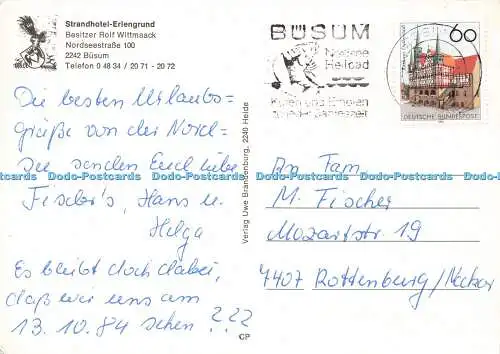 Strandhotel-Erlengrund
Besitzer Rolf Wittmaack
Nordseestraße 100
2242 Büsum
Telefon 0 48 34 / 20 71 - 20 72
BÜSUM
Nordsee
Heilbad
Kuren und Erholen
60
DEUTSCHE BUNDESPOST
Die besten Urlaubs=
grüße von der Nord=
see senden Euch liebe
Fischer's, Hans u.
Helga
Es bleibt doch dabei,
daß wir uns am
13.10.84 sehen ???
Verlag Uwe Brandenburg, 2240 Heide
CP
An Fam.
M. Fischer
Mozartstr. 19
7407 Rottenburg/Neckar
Dodo-Postcards Dodo-Postcards Dodo-Postcards Dodo-Postcards Dodo-Postcards